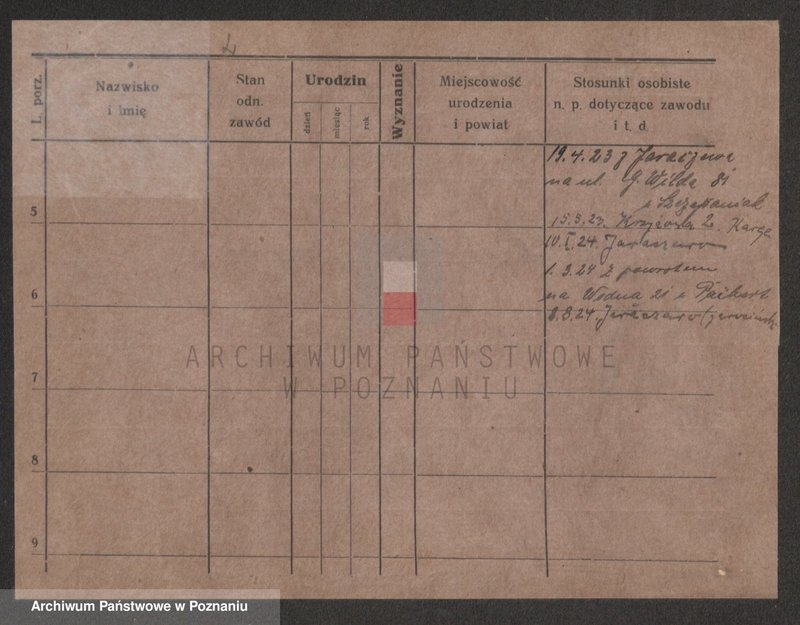 L. porz.
Nazwisko
i imię
Stan
odn.
zawód
Urodzin
dzień
miesiąc
rok
Wyznanie
Miejscowość
urodzenia
i powiat
Stosunki osobiste
n. p. dotyczące zawodu
i t. d
19.4.23 z Jaraczewa
na ul. G. Wilda 81
u Szczepaniak
5
15.5.23. 2. Karge
10.I.24. Jaraczewo
1.3.24 z powrotem
6
na Wodna 21 u
8.8.24. Jaraczewo
7
8
9
ARCHIWUM PAŃSTWOWE
W POZNANIU
Archiwum Państwowe w Poznaniu